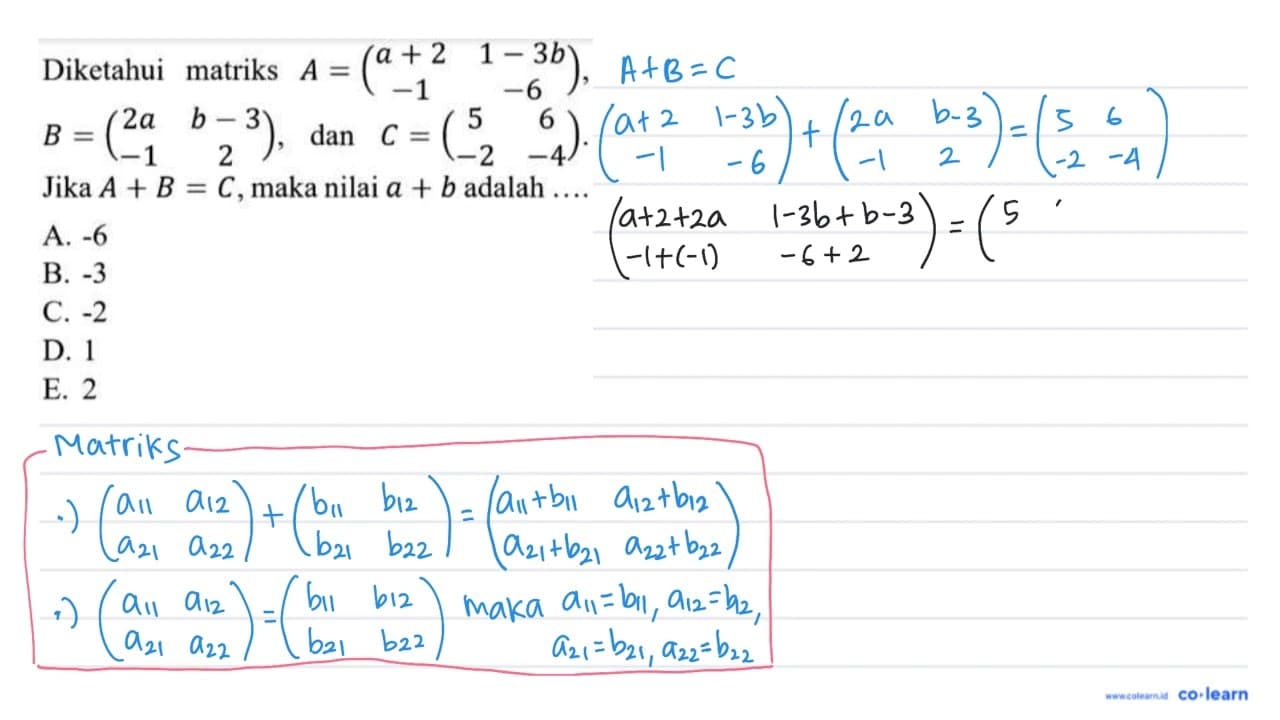 Diketahui matriks A = (a + 2 1 − 3b
−1 −6),
B = (2a b − 3
−1 2), dan C = (5 6
−2 −4).
Jika A + B = C, maka nilai a + b adalah ....
A. -6
B. -3
C. -2
D. 1
E. 2
A+B=C
(a+2 1-3b
-1 -6) + (2a b-3
-1 2) = (5 6
-2 -4)
(a+2+2a 1-3b+b-3
-1+(-1) -6+2) = (5
Matriks
·) (a11 a12
a21 a22) + (b11 b12
b21 b22) = (a11+b11 a12+b12
a21+b21 a22+b22)
·) (a11 a12
a21 a22) = (b11 b12
b21 b22) maka a11=b11, a12=b2,
a21=b21, a22=b22
www.colearn.id co·learn